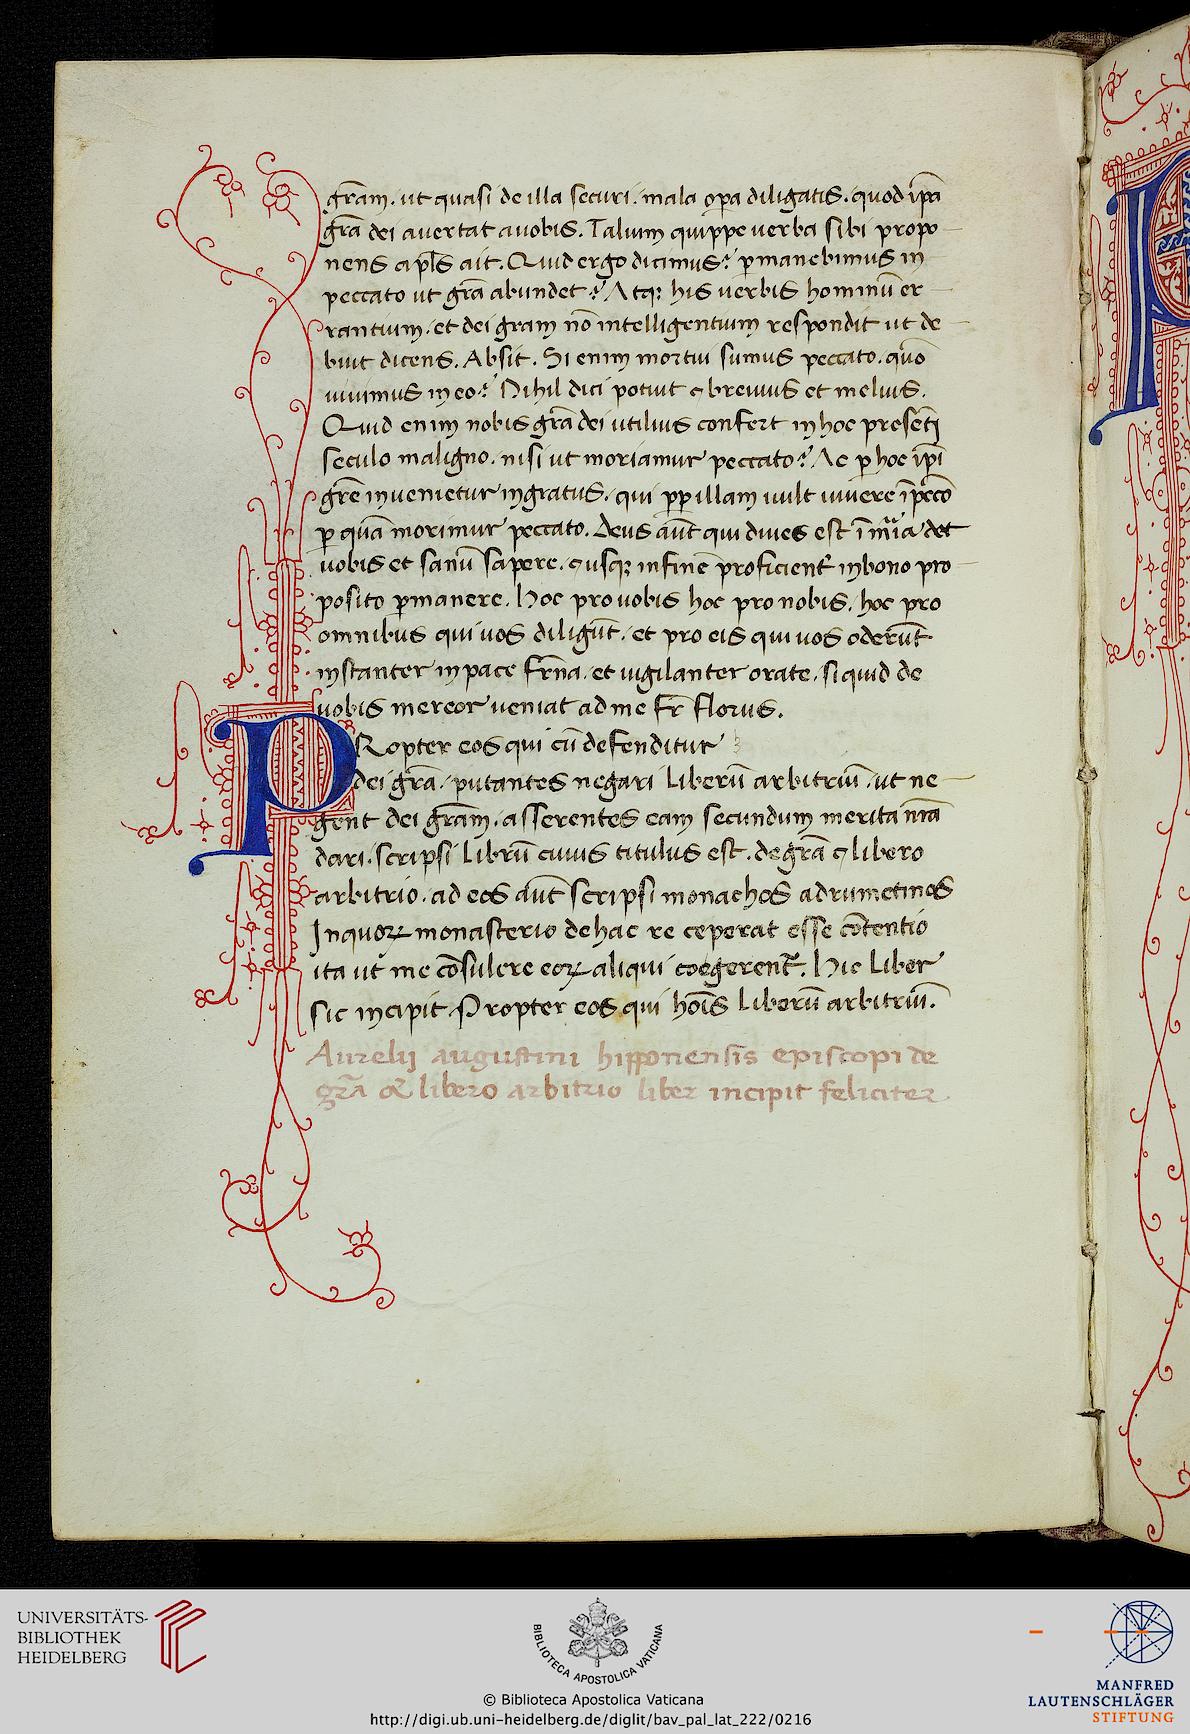 gr̄am. ut quasi de illa securi. mala op̄a diligatis. quod ip̄a
gr̄a dei auertat auobis. Talium quippe uerba sibi propo
nens ap̄ls ait. Quid ergo dicimus? p̱manebimus in
peccato ut gr̄a abundet? Atqꝫ his uerbis hominū er
rantium. et dei gr̄am nō intelligentium respondit ut de
buit dicens. Absit. Si enim mortui sumus peccato. quō
uiuimus in eo? Nihil dici potuit ꝯ breuius et melius.
Quid enim nobis gr̄a dei utilius confert in hoc presēti
seculo maligno. nisi ut moriamur peccato? Ac ꝑ hoc ip̄i
gr̄e inuenietur ingratus. qui pp̄ illam uult uiuere ī pecc̄o
ꝑ quā morimur peccato. Deus aūt qui diues est ī mīa det
uobis et sanū sapere. ꝯ usqꝫ in finē proficient̄ in bono pro
posito ꝑmanere. Hoc pro uobis hoc pro nobis. hoc pro
omnibus qui uos diligūt. et pro eis qui uos oderūt
instanter in pace fr̄na. et uigilanter orate. si quid de
uobis mereor ueniat ad me fr̄ florus.
PRopter eos qui cū defenditur
dei gr̄a. putantes negari liberū arbitriū. ut ne
gent dei gr̄am. asserentes eam secundum merita nr̄a
dari. scripsi librū cuius titulus est. de gr̄a ꝯ libero
arbitrio. ad eos aūt scripsi monachos adrumetinos
In quoꝝ monasterio de hac re ceperat esse cōtentio
ita ut me cōsulere eoꝝ aliqui coegerent̄. Hic liber
sic incipit. Propter eos qui hoīs liberū arbitriū.
Aurelij augustini hipponensis episcopi de
gr̄a & libero arbitrio liber incipit feliciter
UNIVERSITÄTS-
BIBLIOTHEK
HEIDELBERG
BIBLIOTECA APOSTOLICA VATICANA
© Biblioteca Apostolica Vaticana
http://digi.ub.uni-heidelberg.de/diglit/bav_pal_lat_222/0216
MANFRED
LAUTENSCHLÄGER
STIFTUNG